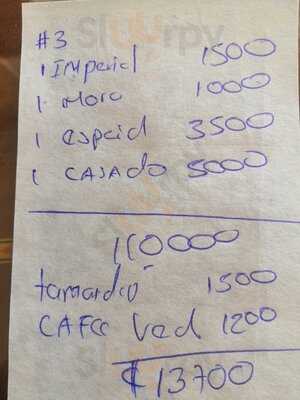 #3
1 Imperial 1500
1 Mora 1000
1 especial 3500
1 CASADO 5000
110000
tamarindo 1500
CAFEE 1200
₡13700